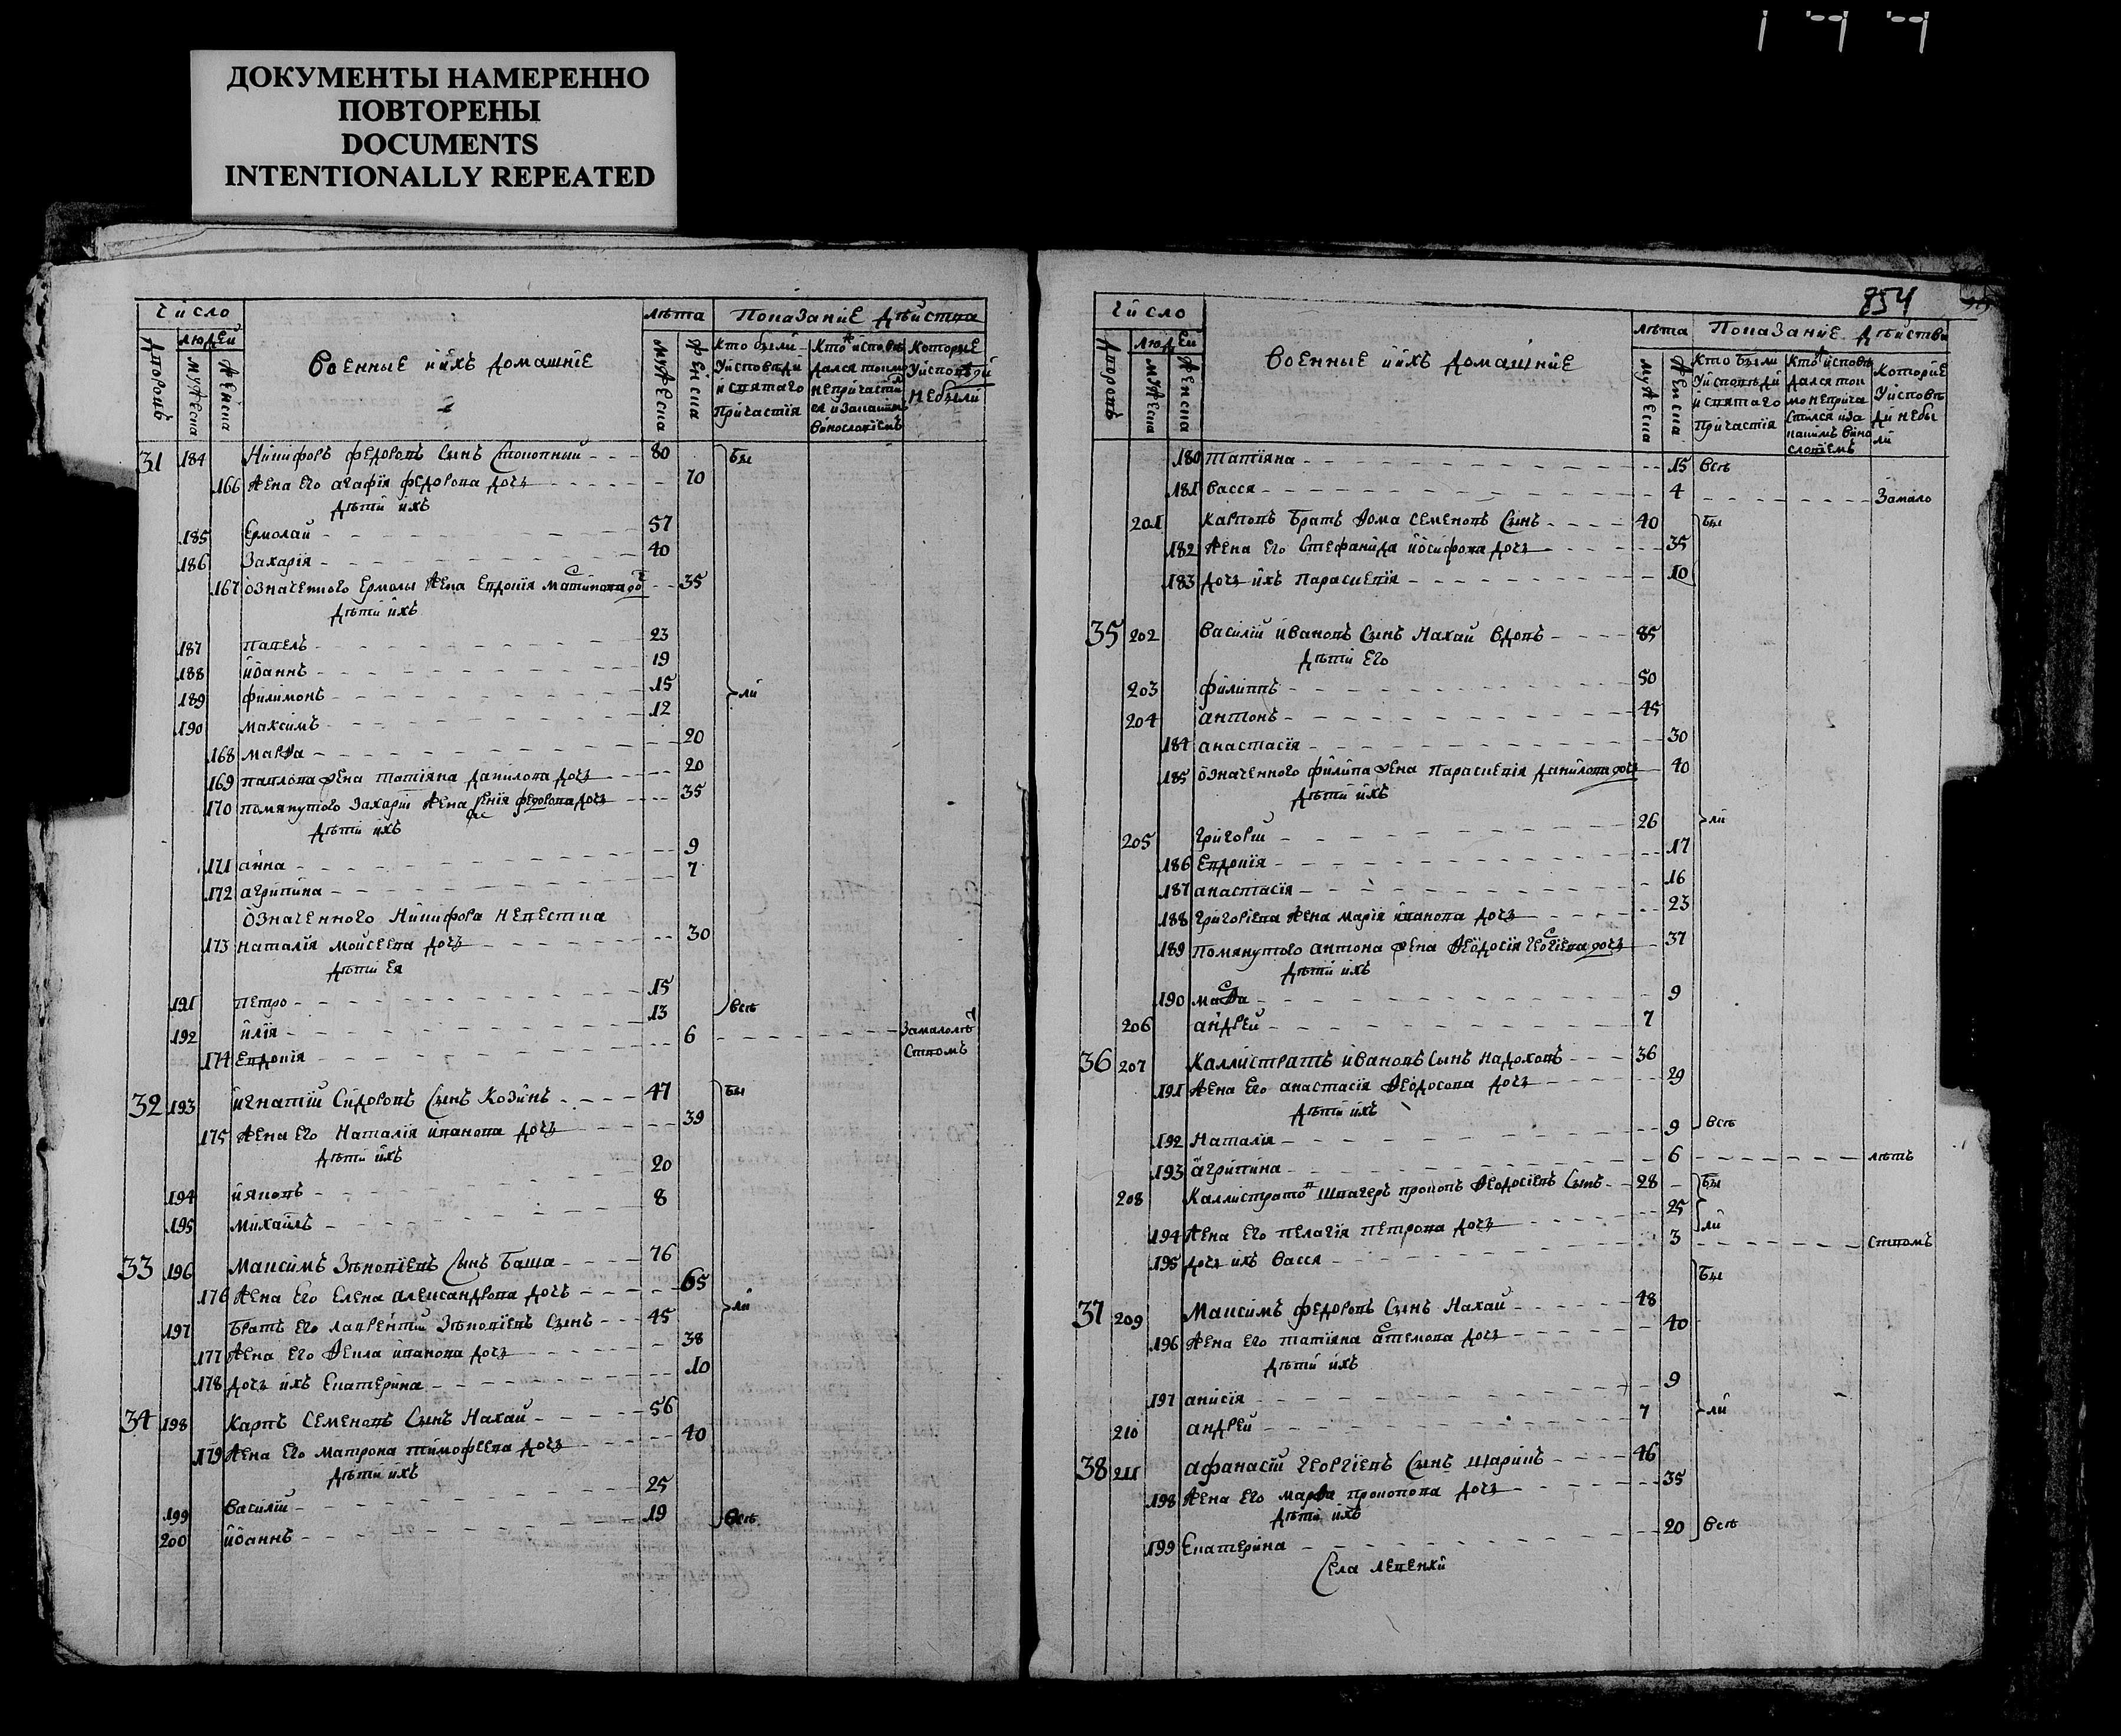 ДОКУМЕНТЫ НАМЕРЕННО
ПОВТОРЕНЫ
DOCUMENTS
INTENTIONALLY REPEATED
число лѣта Показание дѣйства
людей
дворовъ мужеска женска Военные ихъ домашніе мужеска женска
Кто были у исповѣди и святаго причастія
Кто исповѣдался токмо не причастился и за какимъ винословіемъ
Которые у исповѣди не были
31 184 Никифоръ Федоровъ сынъ 80 Бы
166 жена его агафія федорова дочь 70
дѣти ихъ
185 Ермолай 57
186 Захарія 40
167 означенного Ермолы жена Евдокія 35
дѣти ихъ
187 павелъ 23
188 иоаннъ 19
189 филимонъ 15 ли
190 максимъ 12
168 марѳа 20
169 павлова жена татіяна данилова дочь 20
170 помянутого захарии жена федорова дочь 35
дѣти ихъ
171 анна 9
172 агрипина 7
означенного Никифора невестка
173 наталія мойсеева дочь 30
дѣти ея
191 петро 15
192 илія 13 всѣ
174 Евдокія 6 замалолѣтством
32 193 игнатій Сидоровъ сынъ Козинъ 47 Бы
175 жена его Наталія иванова дочь 39
дѣти ихъ
194 ияковъ 20
195 михаилъ 8
33 196 Максимъ Зѣновіевъ сынъ Баша 76
176 жена его Елена александрова дочь 65
197 братъ его лаврентій Зѣновіевъ сынъ 45 ли
177 жена его Ѳекла иванова дочь 38
178 дочь ихъ Екатерина 10
34 198 Карпъ Семеновъ сынъ Нахай 56
179 жена его матрона тимофеева дочь 40
дѣти ихъ
199 василій 25
200 иоаннъ 19 всѣ
854
число лѣта Показание дѣйства
людей
дворовъ мужеска женска Военные ихъ домашніе мужеска женска
Кто были у исповѣди и святаго причастія
Кто исповѣдался токмо не причастился и за какимъ винословіемъ
Которые у исповѣди не были
180 татіяна 15 всѣ
181 васса 4 замало
201 карповъ братъ Ѳома семеновъ сынъ 40 Бы
182 жена его Стефанида иосифова дочь 35
183 дочь ихъ параскевія 10
35 202 василій ивановъ сынъ Нахай вдовъ 85
дѣти его
203 филиппъ 50
204 антонъ 45
184 анастасія 30
185 означенного филипа жена параскевія данилова дочь 40
дѣти ихъ
205 григорій 26 ли
186 Евдокія 17
187 анастасія 16
188 григоріева жена марія иванова дочь 23
189 помянутого антона жена Ѳеодосія георгіева дочь 37
дѣти ихъ
190 марѳа 9
206 андрей 7
36 207 Каллистратъ ивановъ сынъ Надоховъ 36
191 жена его анастасія Ѳеодосова дочь 29
дѣти ихъ
192 Наталія 9 всѣ
193 агрипина 6 лѣтъ
208 Каллистратовъ швагеръ прокопъ Ѳеодосіевъ сынъ 28 Бы
194 жена его пелагія петрова дочь 25 ли
195 дочь ихъ васса 3 ством
37 209 Максимъ федоровъ сынъ Нахай 48 Бы
196 жена его татіяна артемова дочь 40
дѣти ихъ
197 анисія 9
210 андрей 7 ли
38 211 афанасій георгіевъ сынъ 46
198 жена его марѳа прокопова дочь 35
дѣти ихъ
199 Екатерина 20 всѣ
Села лепехи